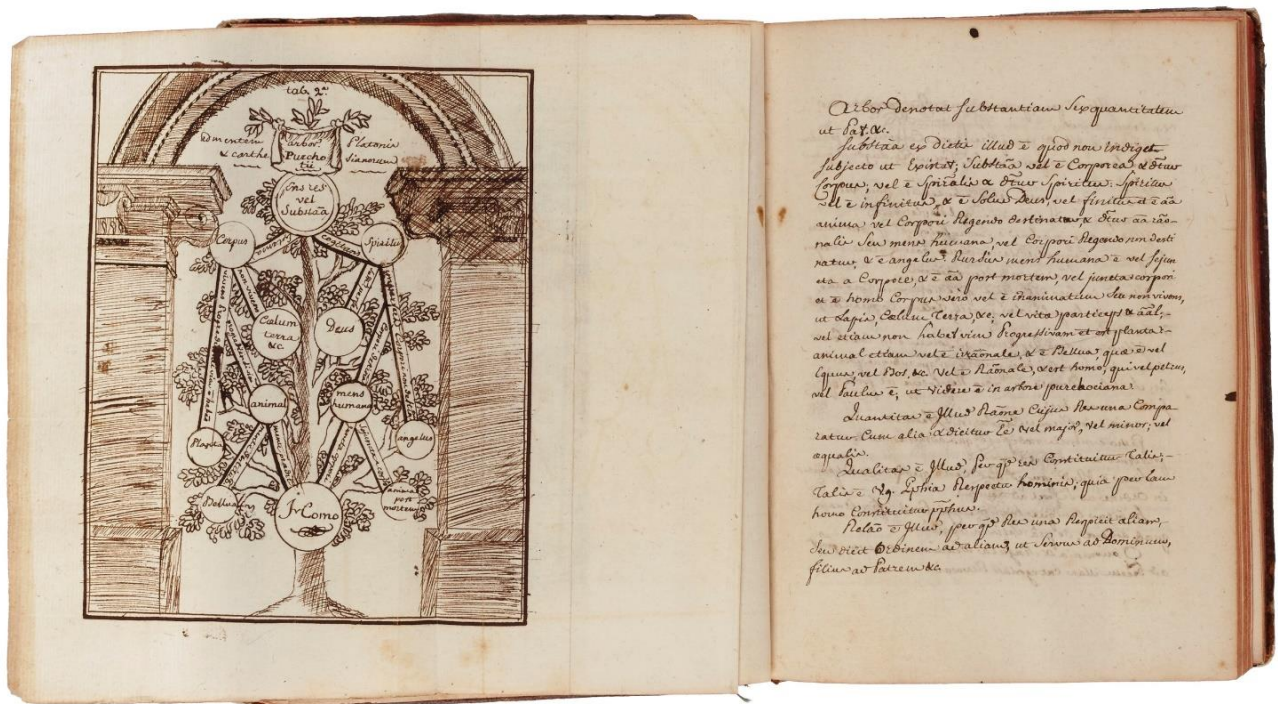 tab. 2ª
ad mentem Platonis
& carthe sianorum
arbor
Purcho
tii
Ens res
vel
Substãa
Corpus
Spiritus
Cœlum
terra
&c.
Deus
animal
mens
humana
Planta
angelus
Bellua
Homo
anima
post
mortem
Arbor denotat substantiam seu quantitatem
ut Pat. &c.
Substãa ex dictis illud ē quod non indiget
subjecto ut existat; substãa vel ē Corporea &
Corpus, vel ē & Spiritus; Spiritus
vel ē infinitus, & ē Solus Deus, vel finitus et ē
anima vel Corpori Regendo destinata &
nalis seu mens humana, vel Corpori Regendo non desti
natus, & ē angelus. Rursus mens humana ē vel sejun
cta a Corpore, & ē post mortem, vel juncta corpori
et ē homo Corpus vero vel ē inanimatum seu non vivens,
ut Lapis, Cœlum Terra &c; vel vita particeps &
vel etiam non habet vim Progressivam et est planta
animal etiam vel ē irãonale, & ē Bellua quæ ē vel
Equus, vel Bos, &c. Vel ē Rãonale, & est homo, qui vel petrus,
vel Paulus ē, ut videre ē in arbore purchociana.
Quantitas ē Illud Rãone Cujus Res una Compa
ratur Cum alia & dicitur vel major, vel minor, vel
æqualis.
Qualitas ē Illud, per qd res Constituitur Talis,
Talis ē Respectu hominis, quia per eam
homo Constituitur
Relão ē Illud, per qd Res una Respicit aliam,
seu dicit Ordinem ad aliam, ut Servus ad Dominum,
filius ad Patrem &c.